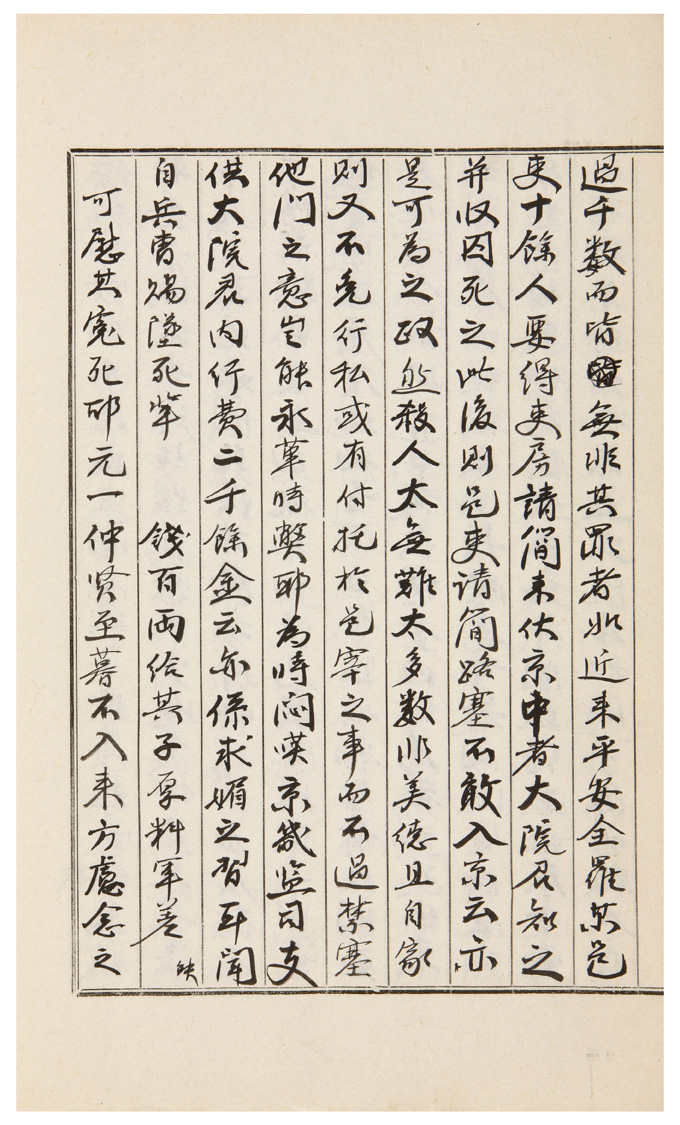 過千數而皆無非其罪者如近来平安全羅等邑
吏十餘人要得吏房請簡来伏京中者大院君知之
并收囚死之此後則邑吏請簡路塞不敢入京云亦
是可為之政然殺人太無難太多數非美德且自家
則又不免行私或有付托於邑宰之事而不過禁塞
他門之意豈能永革時弊耶為時悶嘆京畿監司支
供大院君內行費二千餘金云亦係求媚之習耳聞
自兵曹賜墜死軍 錢百兩給其子厚料軍差
可慰其冤死耶元一仲賢至暮不入来方慮念之